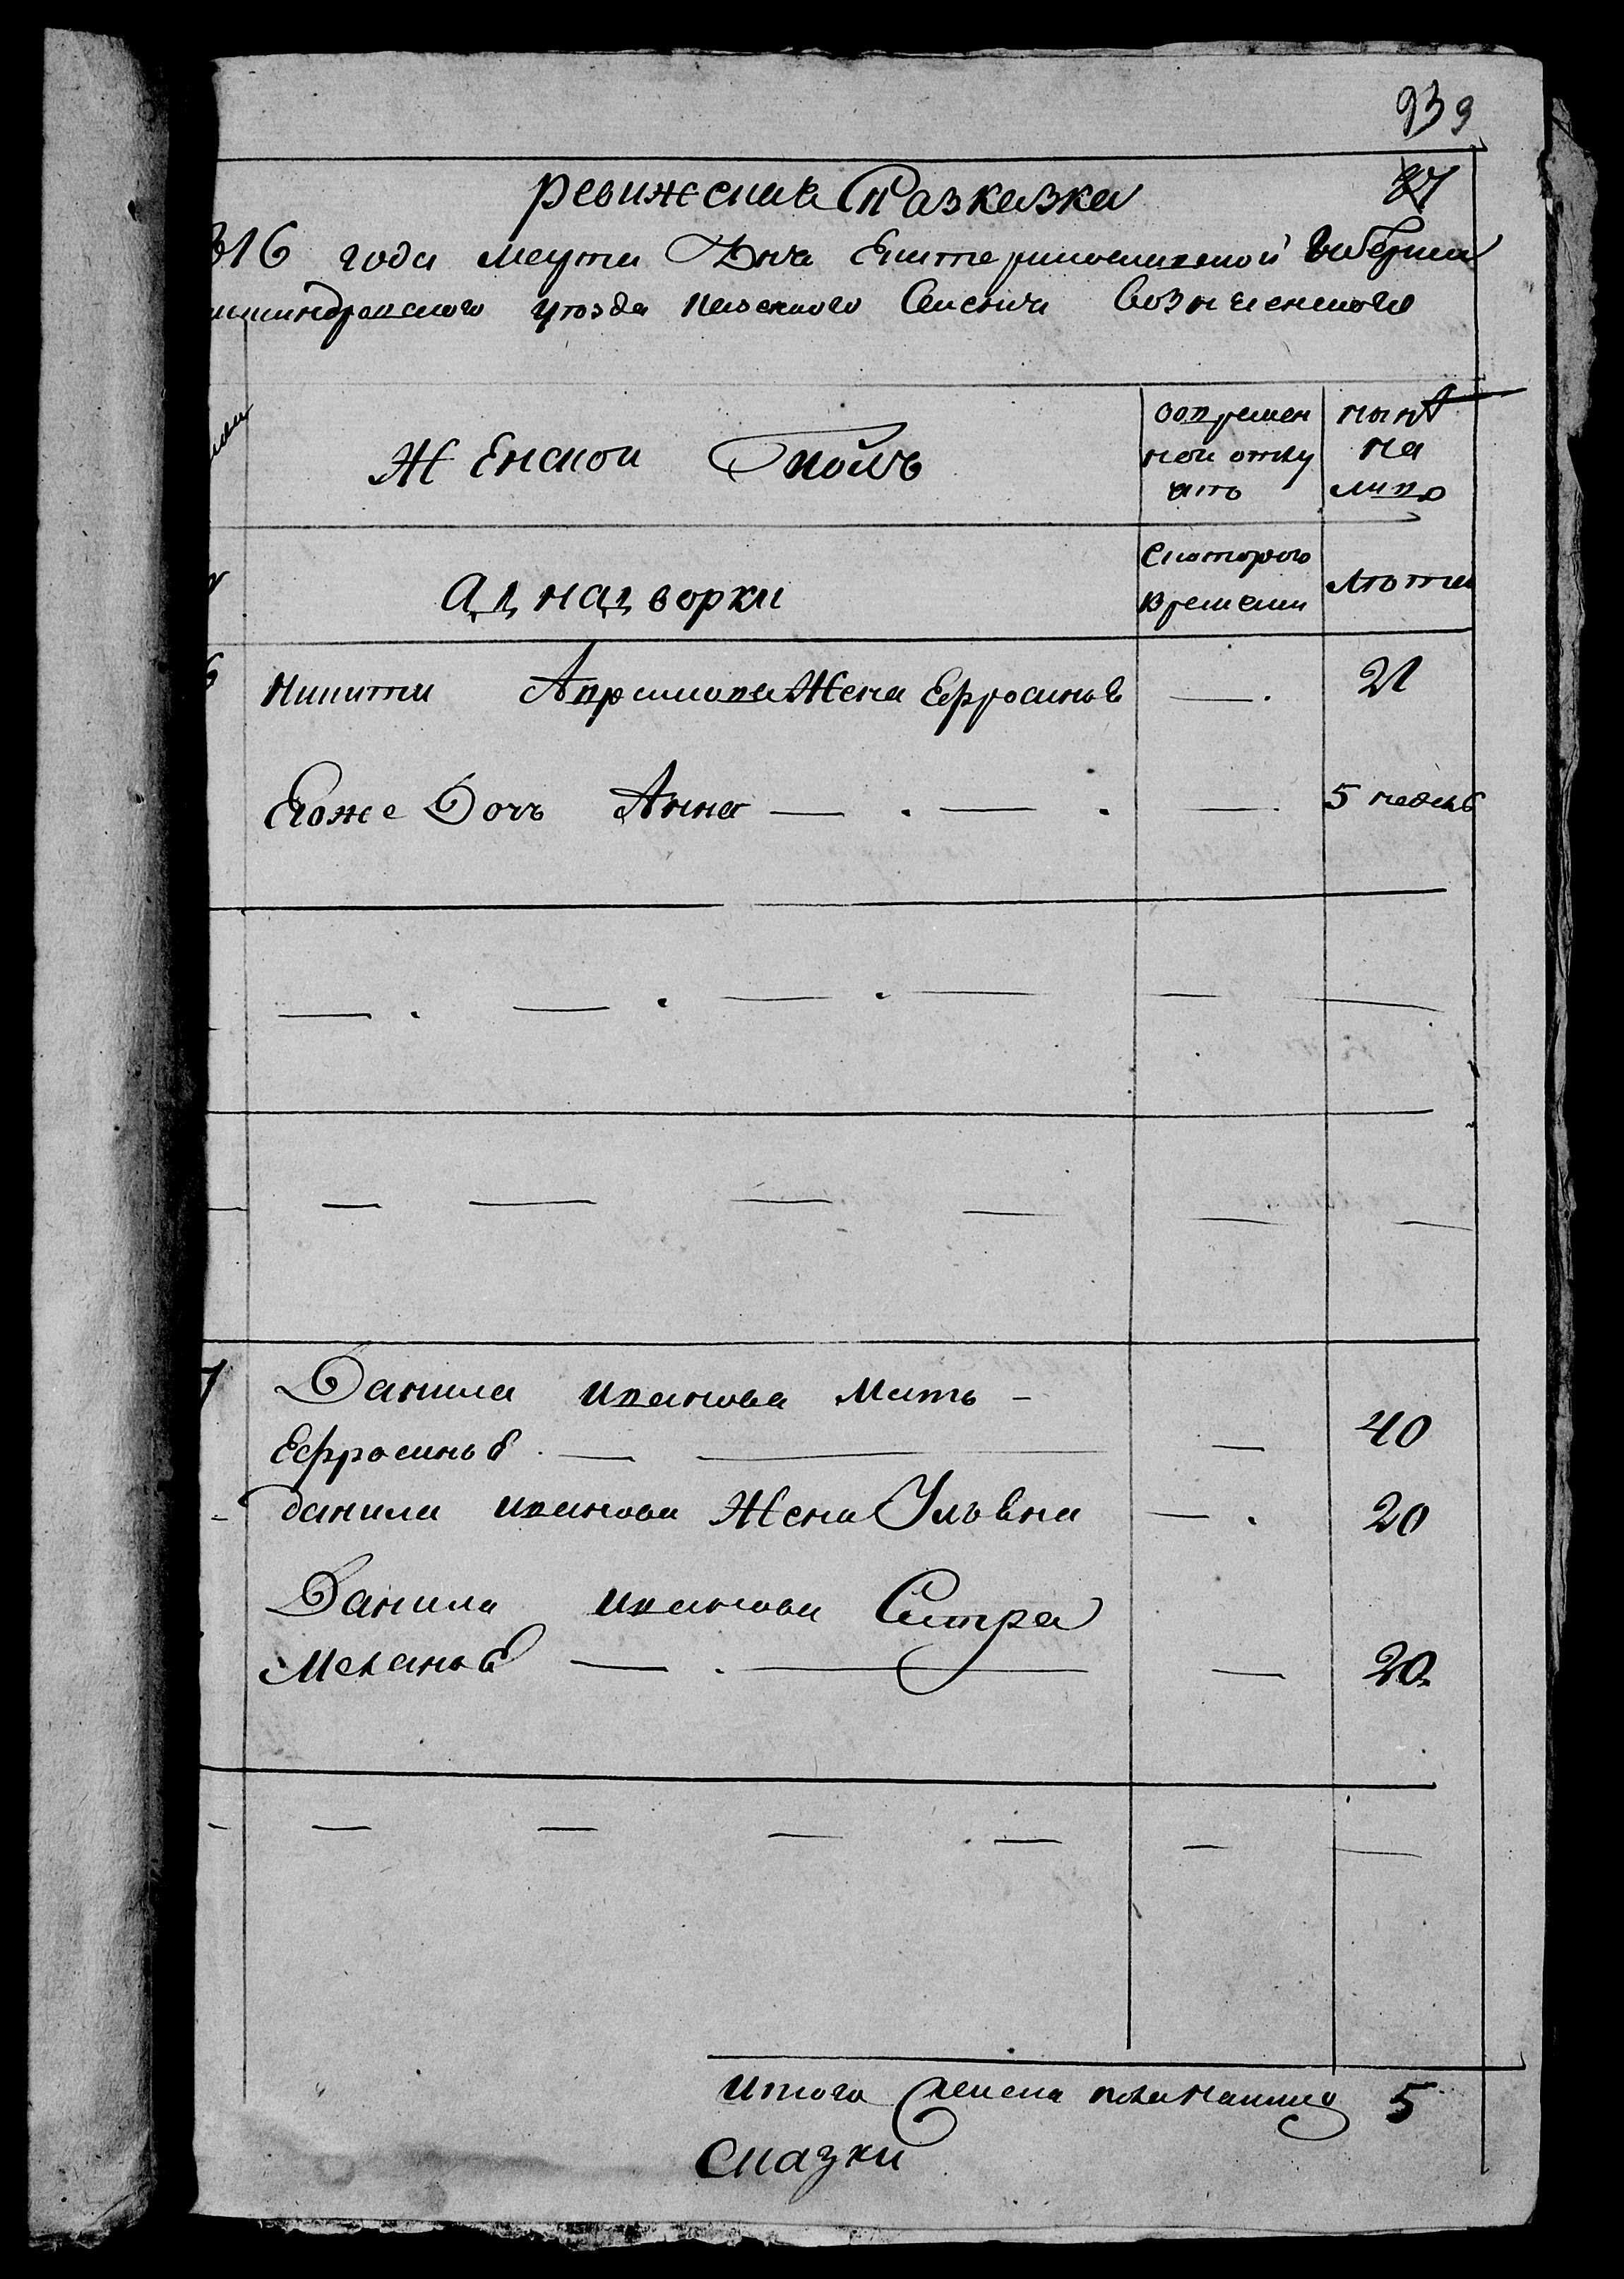 939
ревижская сказка
816 года марта дня Екатеринославской губернии
Александровского уезда Казенного селения Вознесенского
Женской полъ
вовремен
ной отлу
 чкъ
нынѣ
на
лицо
аднадворки
Скоторого
времени
лѣта
Никиты Абрамова жена Ефросинья
21
Егоже дочь Анна
5 недель
7
Данила иванова мать
Ефросинья
40
данила иванова жена Ульяна
20
Данила иванова Систра
Меланья
20
итого женска пола налицо 5
сказки